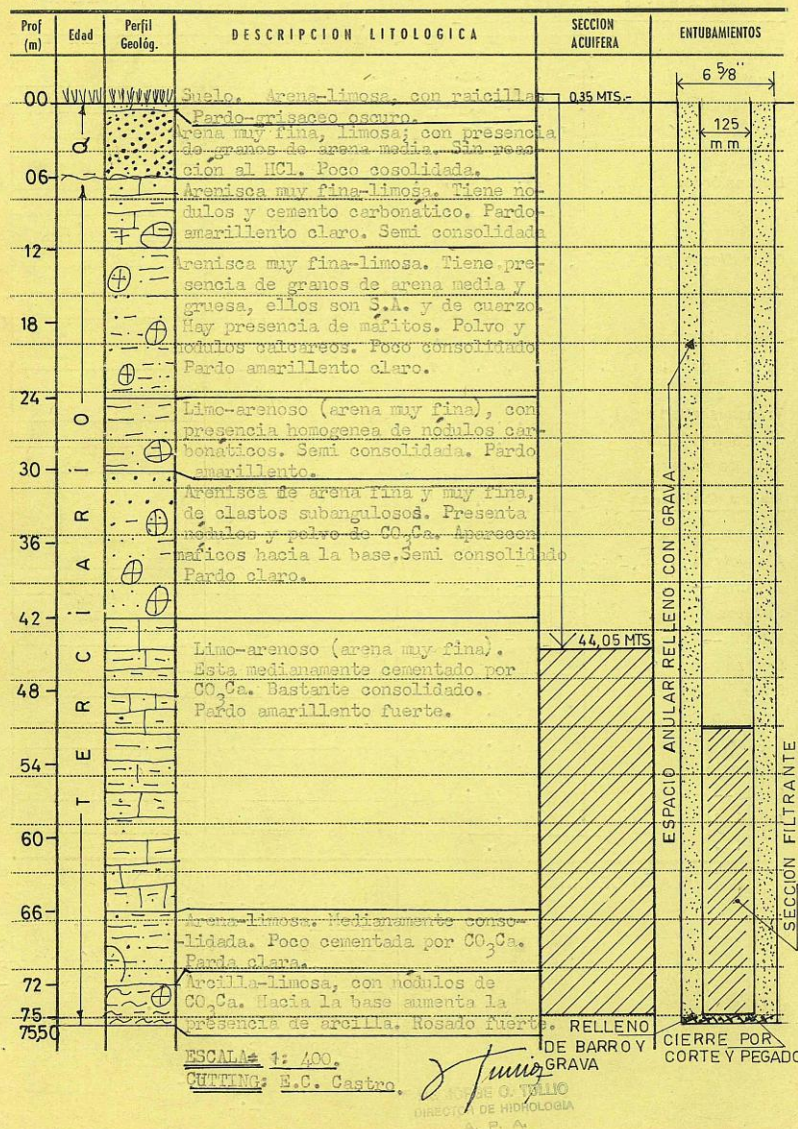 Prof (m)
Edad
Perfil Geológ.
DESCRIPCION LITOLOGICA
SECCION ACUIFERA
ENTUBAMIENTOS
6 5/8"
125 mm
00
06
12
18
24
30
36
42
48
54
60
66
72
75
7550
Q
TERCIARIO
Suelo. Arena-limosa, con raicillas
Pardo-grisaceo oscuro.
Arena muy fina, limosa; con presencia
de granos de arena media. Sin reac-
ción al HCl. Poco cosolidada.
Arenisca muy fina-limosa. Tiene no-
dulos y cemento carbonático. Pardo
amarillento claro. Semi consolidada
Arenisca muy fina-limosa. Tiene pre-
sencia de granos de arena media y
gruesa, ellos son S.A. y de cuarzo.
Hay presencia de máfitos. Polvo y
nodulos calcareos. Poco consolidado
Pardo amarillento claro.
Limo-arenoso (arena muy fina), con
presencia homogenea de nódulos car-
bonáticos. Semi consolidada. Pardo
amarillento.
Arenisca de arena fina y muy fina,
de clastos subangulosos. Presenta
nódulos y polvo de CO3Ca. Aparecen
maficos hacia la base.Semi consolidado
Pardo claro.
Limo-arenoso (arena muy fina).
Esta medianamente cementado por
CO3Ca. Bastante consolidado.
Pardo amarillento fuerte.
Arena-limosa. Medianamente conso-
-lidada. Poco cementada por CO3Ca.
Parda clara.
Arcilla-limosa, con nódulos de
CO3Ca. Hacia la base aumenta la
presencia de arcilla. Rosado fuerte.
0,35 MTS.-
44,05 MTS
ESPACIO ANULAR RELLENO CON GRAVA
SECCION FILTRANTE
RELLENO
DE BARRO Y
GRAVA
CIERRE POR
CORTE Y PEGADO
ESCALA: 1: 400.
CUTTING: E.C. Castro.
JORGE O. TULLIO
DIRECTOR DE HIDROLOGIA
A. P. A.